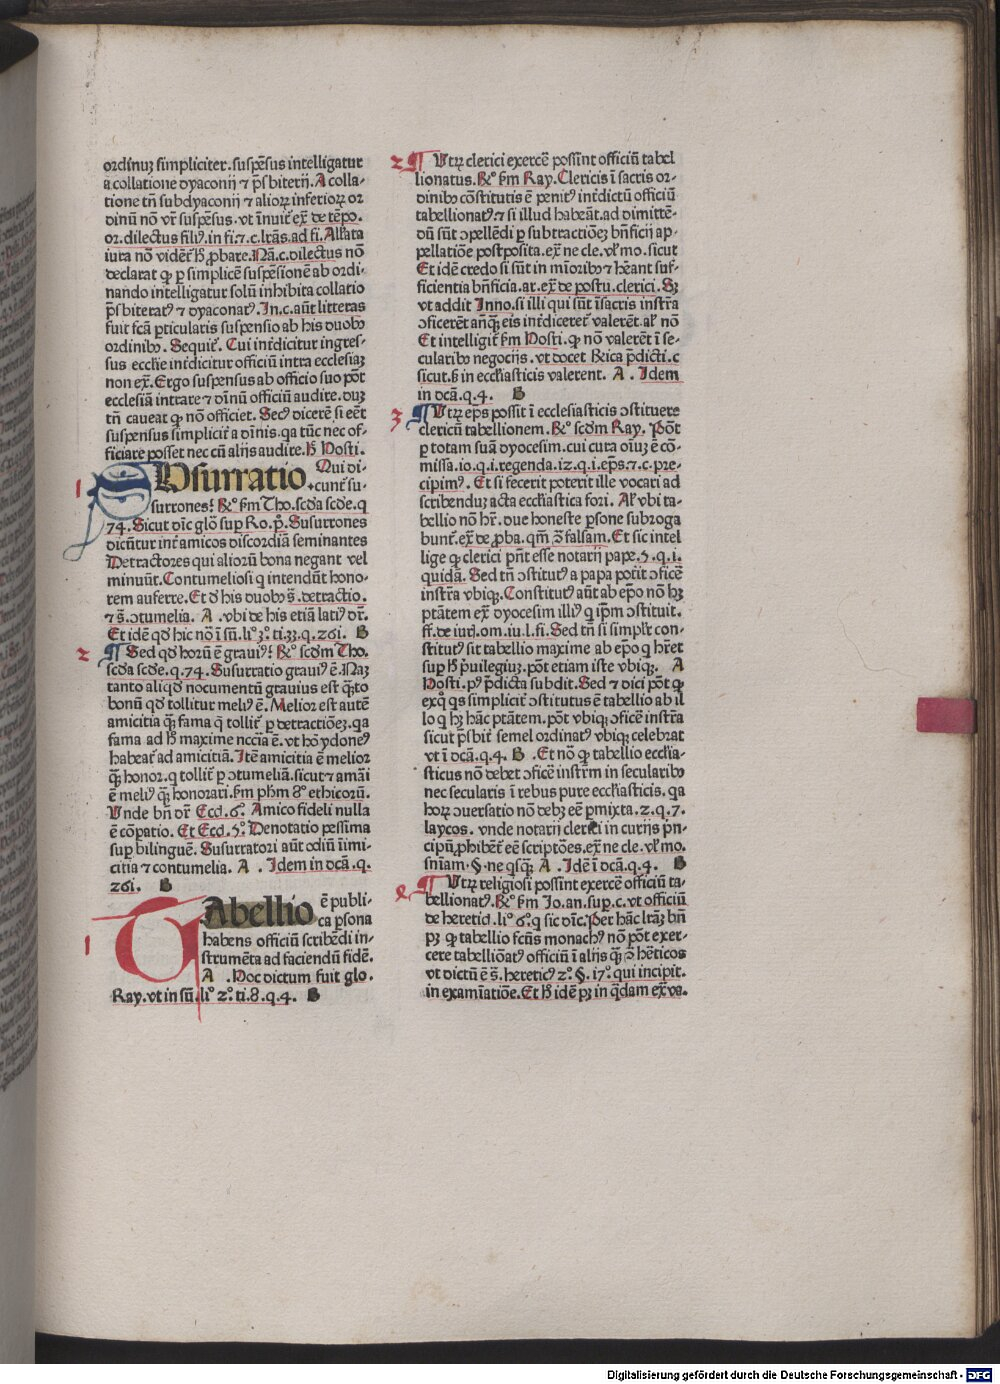 ordinuꝫ simpliciter.suspēsus intelligatur
a collatione dyaconij ⁊ p̄sbiterij. A colla-
tione tn̄ subdyaconij ⁊ alioꝝ inferioꝝ or
dinū nō vr̄ suspēsus.vt īnuit̄ ex̄ de tēpo.
or.dilectus filiꝰ.in fi.⁊.c.lr̄as.ad fi. Allata
iura nō vidēt̄ h̄ ꝓbare. Nā.c.dilectus nō
declarat ꝙ ꝑ simplicē suspēsionē ab ordi-
nando intelligatur solū inhibita collatio
p̄sbiteratꝰ ⁊ dyaconatꝰ. In.c.aūt litteras
fuit fcā ꝑticularis suspensio ab his duobꝰ
ordinibꝰ. Sequit̄. Cui int̄dicitur ingres-
sus eccl̄ie int̄dicitur officiū intra ecclesiaꝫ
non ex̄. Ergo suspensus ab officio suo pōt
ecclesiā intrare ⁊ dīnū officiū audire.duꝫ
tn̄ caueat ꝙ nō officiet. Secꝰ dicerē si eēt
suspensus simplicit̄ a dīnis.qa tūc nec of-
ficiare posset nec cū alijs audire. H̄ Hosti.
1 SUsurratio Qui di-
.cunt̄ su-
surrones? R̄º ẜm Tho.scd̄a scd̄e.q
74. Sicut dīc glō sup Ro.p̄. Susurrones
dicūtur int̄ amicos discordiā seminantes
Detractores qui alioꝝ bona negant vel
minuūt. Contumeliosi q intendūt hono-
rem auferre. Et d̄ his duobꝰ s̄.detractio.
⁊ s̄.ɔtumelia. A .vbi de his etiā latiꝰ dr̄.
Et idē qd̄ hic nō ī sū.liº 3º.ti.33.q.26i. B
2 ¶ Sed qd̄ horū ē grauiꝰ? R̄º scd̄m Tho.
scd̄a scd̄e.q.74. Susurratio grauiꝰ ē. Naꝫ
tanto aliqd̄ nocumentū grauius est q̄ꝫto
bonū qd̄ tollitur meliꝰ ē. Melior est autē
amicitia q̄ꝫ fama q tollit̄ ꝑ detractiōeꝫ.qa
fama ad h̄ maxime nccīa ē.vt hō ydoneꝰ
habeat̄ ad amicitiā. Itē amicitia ē melior
q̄ꝫ honor.q tollit̄ ꝑ ɔtumeliā.sicut ⁊ amāi
ē meliꝰ q̄ꝫ honorari.ẜm phm̄ 8º ethicorū.
Unde bn̄ dr̄ Eccl.6º. Amico fideli nulla
ē cōpatio. Et Eccl.5º. Denotatio pessima
sup̄ bilinguē. Susurratori aūt odiū īimi-
citia ⁊ contumelia. A . Idem in dcā.q.
26i. B
1 TAbellio ē publi-
ca ꝑsona
habens officiū scribēdi in-
strumēta ad faciendū fidē.
A . Hoc dictum fuit glo.
Ray.vt in sū.liº 2º.ti.8.q.4. B
2 ¶ Utꝝ clerici exercē possint officiū tabel
lionatus. R̄º ẜm Ray. Clericis ī sacris or-
dinibꝰ cōstitutis ē penitꝰ int̄dictū officiū
tabellionatꝰ.⁊ si illud habeāt.ad dimittē-
dū sūt ɔpellēdi ꝑ subtractiōeꝫ bn̄ficij ap-
pellatiōe postposita.ex̄ ne cle.vl̓ mo.sicut
Et idē credo si sūt in mīoribꝰ ⁊ hēant suf-
ficientia bn̄ficia.ar.ex̄ de postu.clerici. Sꝫ
vt addit Inno.si illi qui sūt ī sacris instr̄a
ɔficerēt anq̄ꝫ eis int̄diceret̄ valerēt.al̓ nō
Et intelligit̄ ẜm Hosti.ꝙ nō valerēt ī se-
cularibꝰ negocijs.vt docet R̄ica p̄dicti.c
sicut.ß in eccl̄iasticis valerent. A . Idem
in dcā.q.4. B
3 ¶ Utꝝ ep̄s possit ī ecclesiasticis ɔstituere
clericū tabellionem. R̄º scd̄m Ray. Pōt
ꝑ totam suā dyocesim.cui cura oīuꝫ ē cō-
missa.io.q.i.regenda.iz.q.i.ep̄s.⁊.c.pre-
cipimꝰ. Et si fecerit poterit ille vocari ad
scribenduꝫ acta eccl̄iastica fori. Al̓ vbi ta-
bellio nō hr̄.due honeste ꝑsone subroga
bunt̄.ex̄ de ꝓba.qm̄ ɔ̄ falsam. Et sic intel
lige ꝙ clerici pn̄t esse notarij pape.5.q.i.
quidā. Sed tn̄ ɔstitutꝰ a papa pot̄it ɔficē
instr̄a vbiqꝫ. Constitutꝰ aūt ab ep̄o nō hꝫ
ptātem ex̄ dyocesim illiꝰ q ip̄m ɔstituit.
ff.de iurị.om.iu.l.fi. Sed tn̄ si simpl̓r con-
stitutꝰ sit tabellio maxime ab ep̄o q hr̄et
sup h̄ p̄uilegiuꝫ.pōt etiam iste vbiqꝫ. A
Hosti.pꝰ p̄dicta subdit. Sed ⁊ dici pōt ꝙ
exq̊ qs simplicit̄ ɔstitutus ē tabellio ab il
lo q hꝫ hāc ptātem.pōt vbiqꝫ ɔficē instr̄a
sicut p̄sbit̄ semel ordinatꝰ vbiqꝫ celebrat
vt ī dcā.q.4. B . Et nō ꝙ tabellio eccl̄ia-
sticus nō debet ɔficē instr̄m in secularibꝰ
nec secularis ī rebus pure eccl̄iasticis.qa
horꝝ ɔuersatio nō debꝫ eē ꝑmixta.2.q.7.
laycos. vnde notarij clerici in curijs p̄n-
cipū ꝓhibēt̄ eē scriptōes.ex̄ ne cle.vl̓ mo.
sn̄iam.§.ne qsq̄ꝫ. A . Idē ī dcā.q.4. B
¶ Utꝝ religiosi possint exercē officiū ta-
bellionatꝰ. R̄º ẜm Jo.an.sup.c.vt officiū
de heretic̣.liº 6º.q sic dīc. Per hāc lr̄aꝫ bn̄
pꝫ ꝙ tabellio fctūs monachꝰ nō pōt exer-
cere tabelliōatꝰ officiū ī alijs q̄ꝫ ɔ̄ hēticos
vt dictū ē s̄.hereticꝰ 2º.§.17º.qui incipit.
in examīatiōe. Et h̄ idē pꝫ in q̄dam ex̄ va.
Digitalisierung gefördert durch die Deutsche Forschungsgemeinschaft - DFG